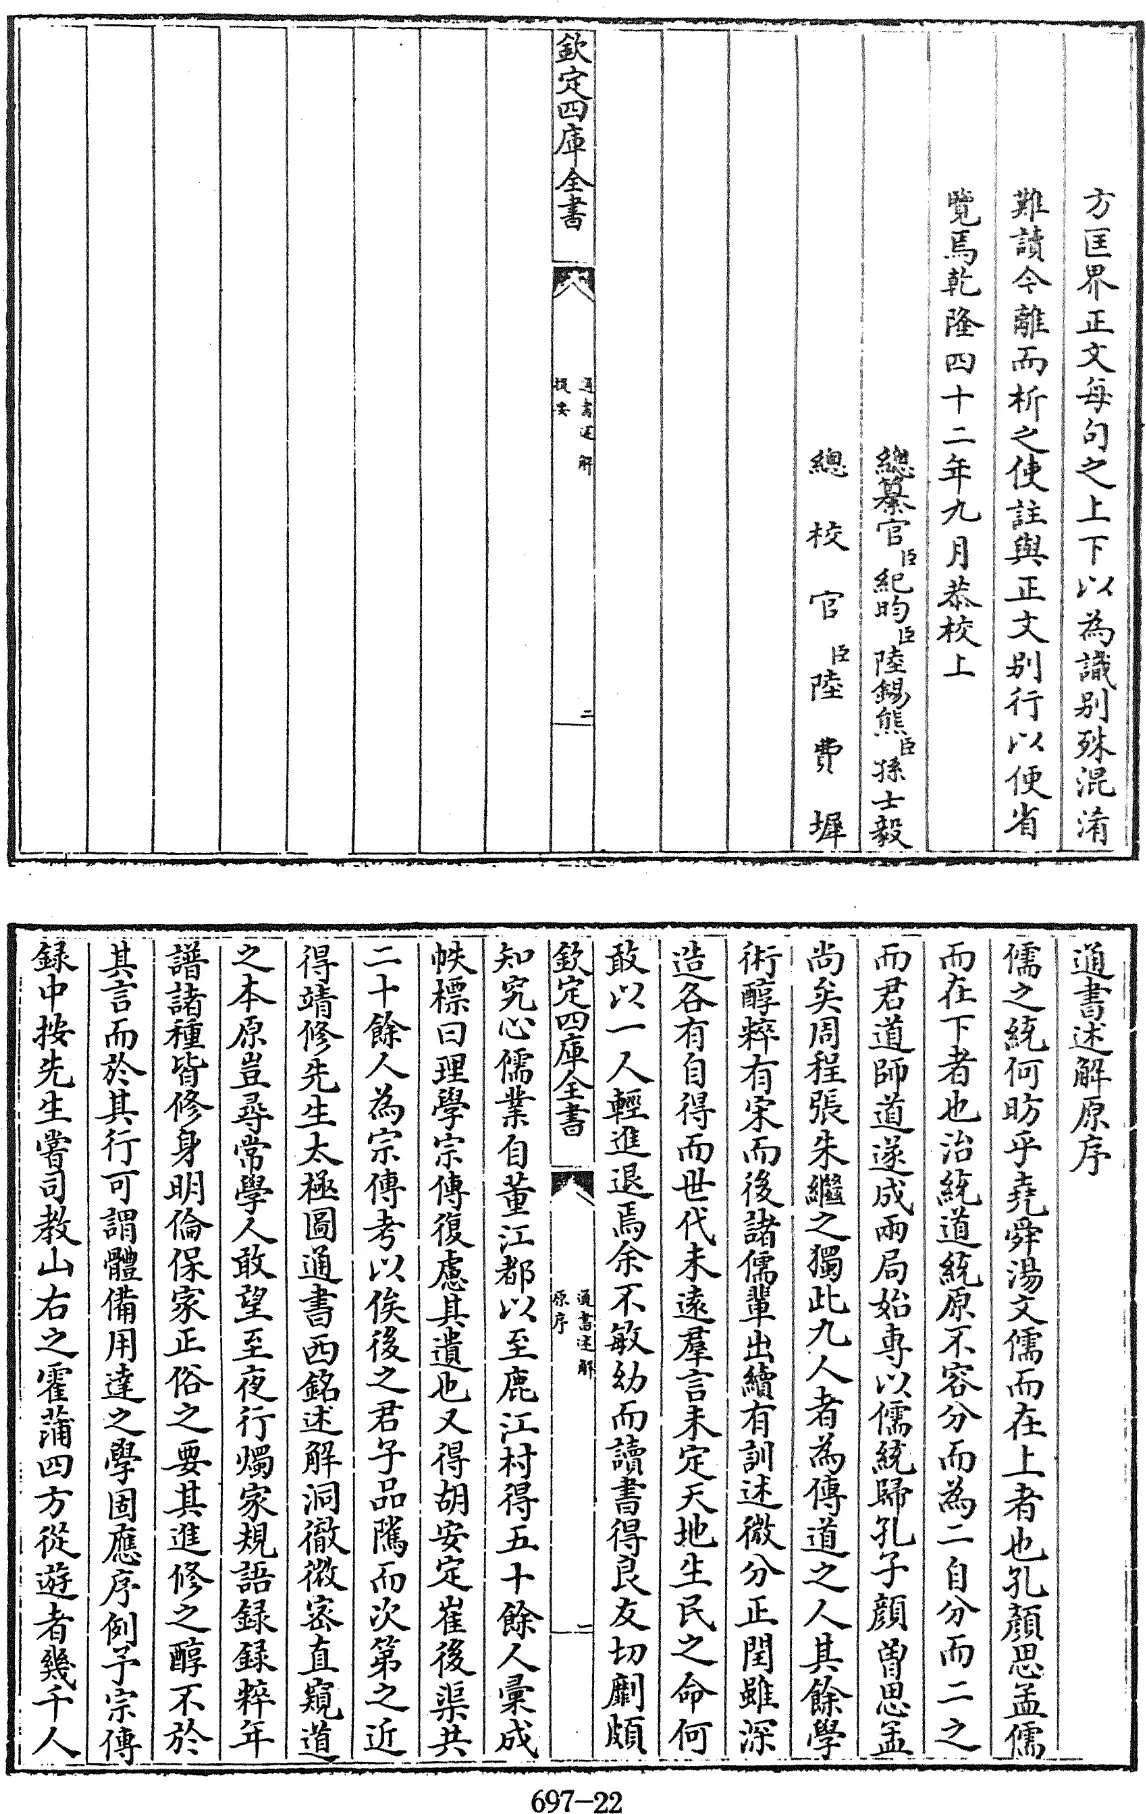 方匡界正文每句之上下以為識别殊混淆
難讀今離而析之使註與正文别行以便省
覽焉乾隆四十二年九月恭校上
總纂官臣紀昀臣陸錫熊臣孫士毅
總校官臣陸費墀
欽定四庫全書
通書述解
提要
二
通書述解原序
儒之統何昉乎堯舜湯文儒而在上者也孔顔思孟儒
而在下者也治統道統原不容分而為二自分而二之
而君道師道遂成兩局始專以儒統歸孔子顔曽思孟
尚矣周程張朱繼之獨此九人者為傳道之人其餘學
術醇粹有宋而後諸儒輩出續有訓述微分正閏雖深
造各有自得而世代未遠羣言未定天地生民之命何
敢以一人輕進退焉余不敏幼而讀書得良友切劘頗
欽定四庫全書
通書述解
原序
二
知究心儒業自董江都以至鹿江村得五十餘人彙成
帙標曰理學宗傳復慮其遺也又得胡安定崔後渠共
二十餘人為宗傳考以俟後之君子品隲而次第之近
得靖修先生太極圖通書西銘述解洞徹微密直窺道
之本原豈尋常學人敢望至夜行燭家規語録録粹年
譜諸種皆修身明倫保家正俗之要其進修之醇不於
其言而於其行可謂體備用達之學固應序例予宗傳
録中按先生嘗司教山右之霍蒲四方從遊者幾千人
697-22